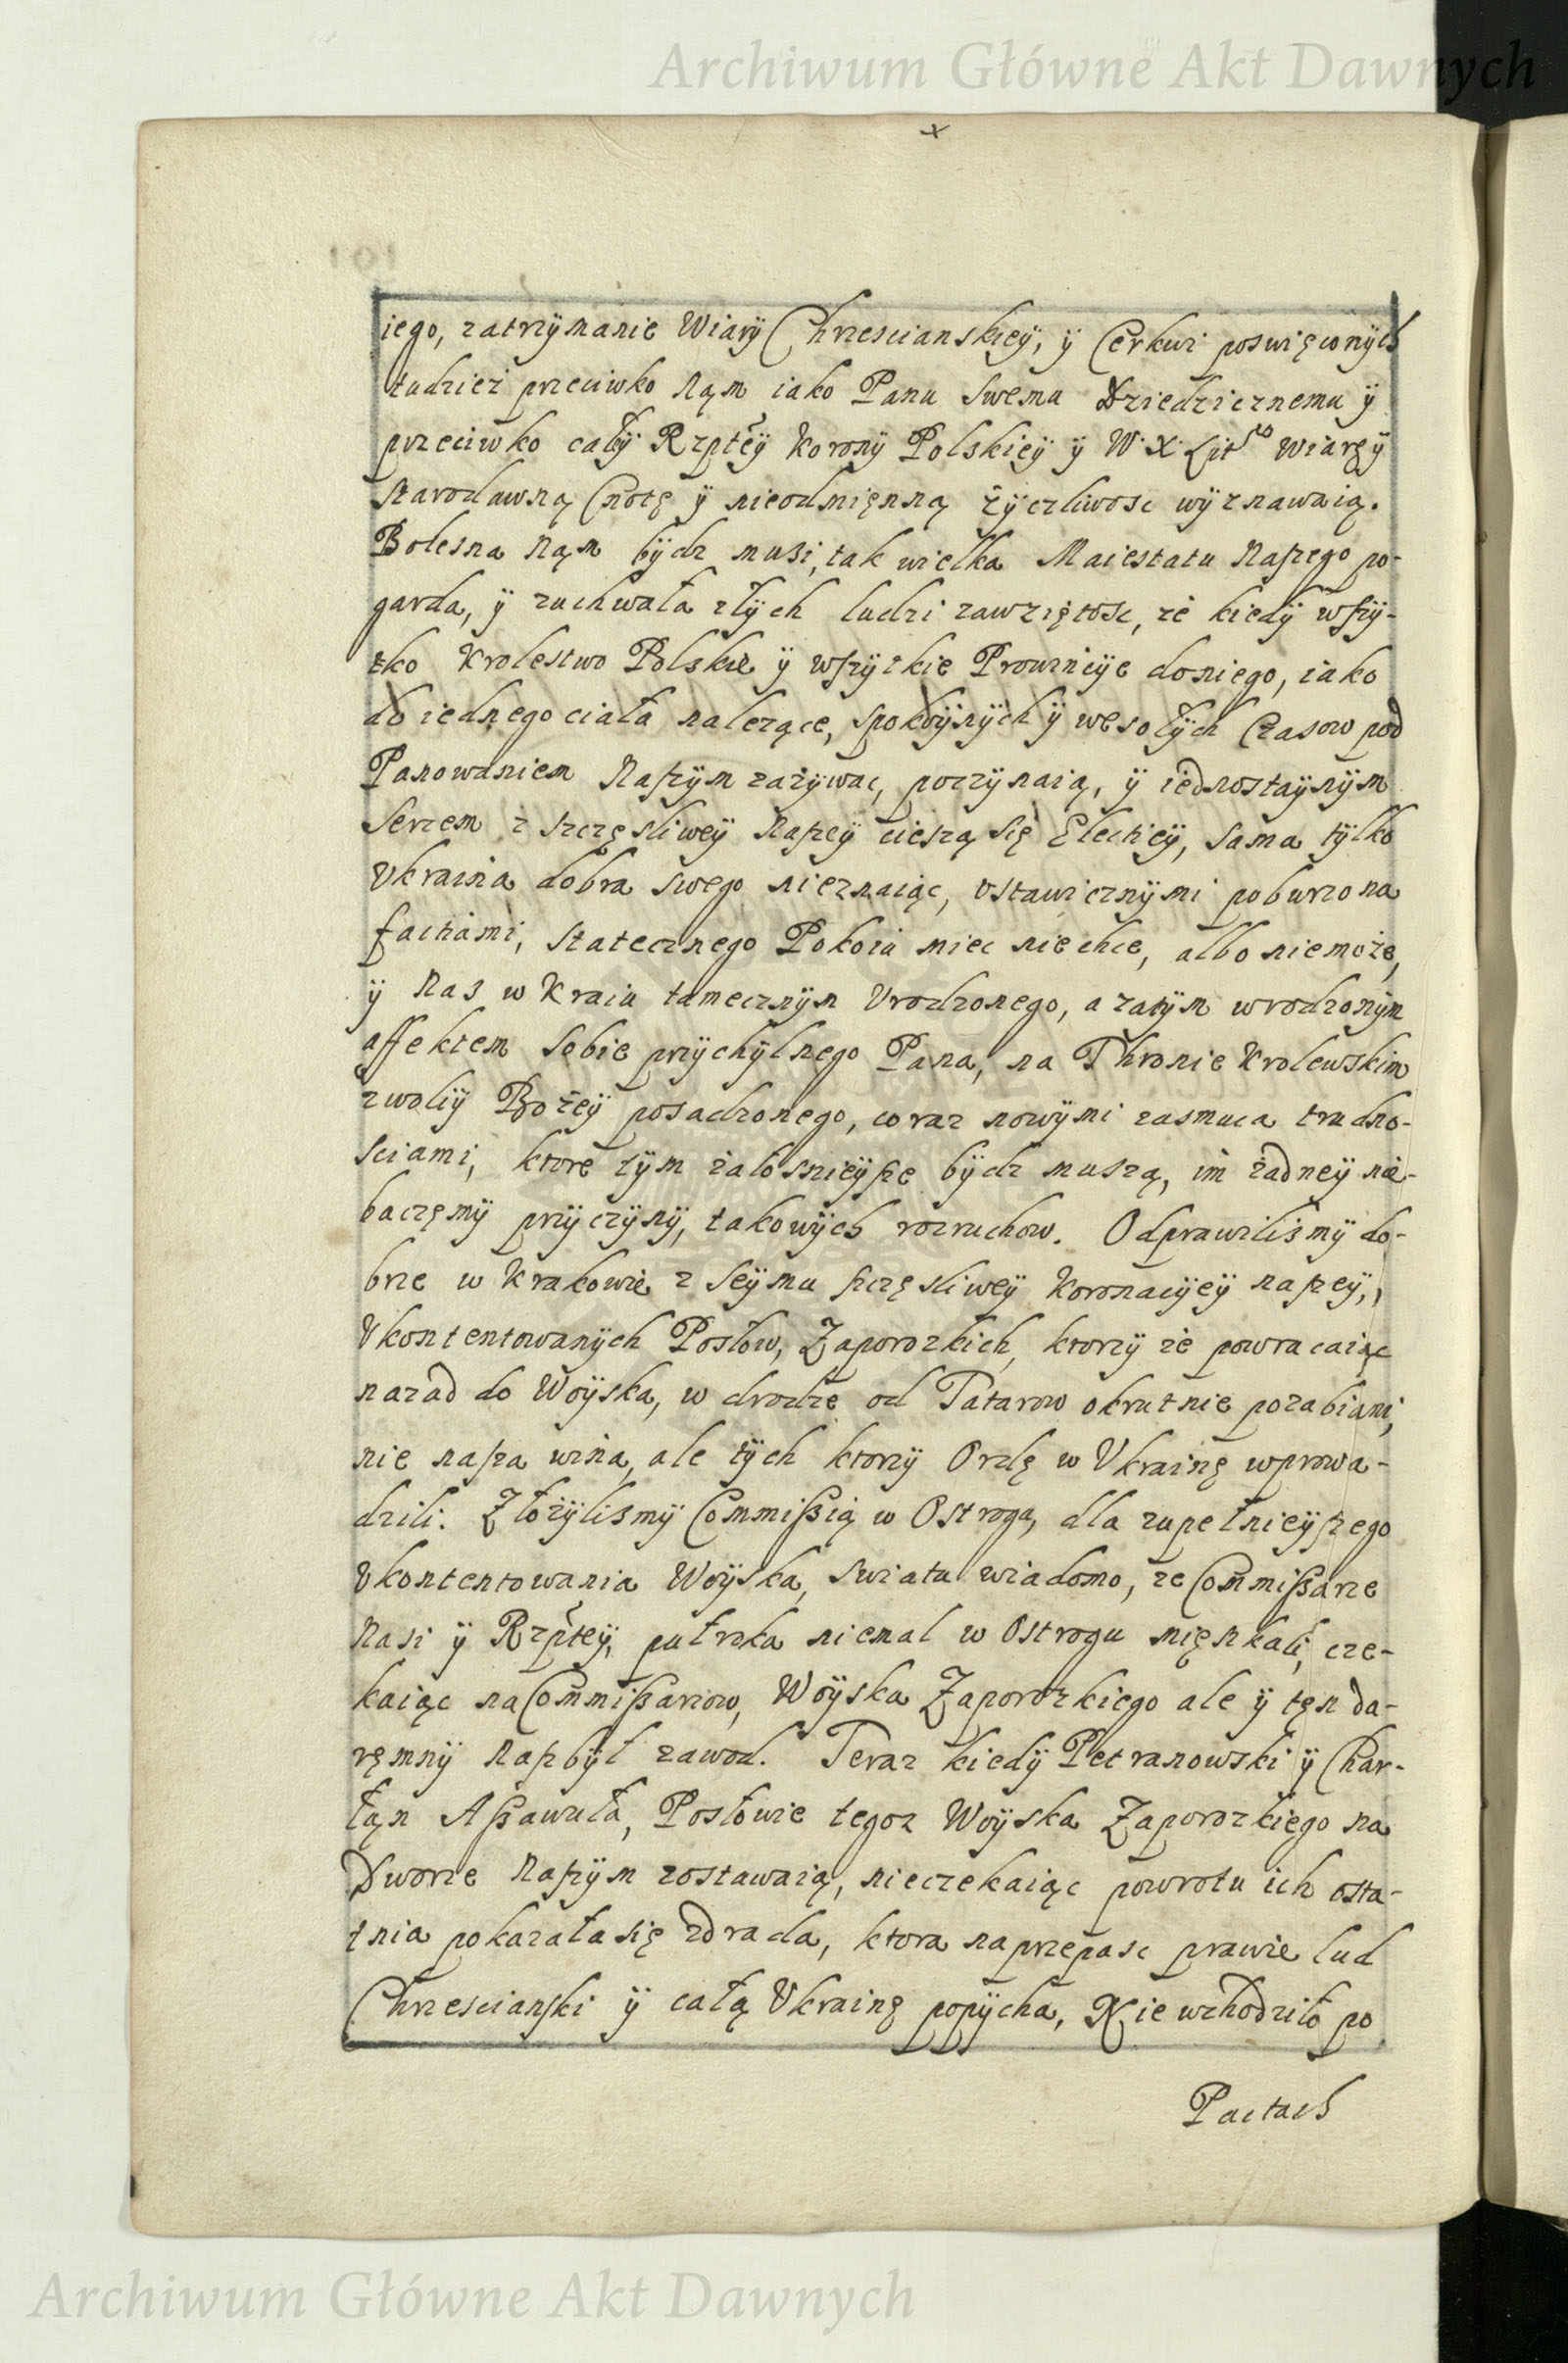 Archiwum Główne Akt Dawnych
iego, zatrzÿmanie WiarÿChrzescianskieÿ, ÿ Cerkwi poswięconÿch
tudziez przeciwko Nąm iako Panu Swemu Dziedzicznemu ÿ
przeciwko całÿ Rzpteÿ Koronÿ Polskieÿ ÿ W. X. Litgo Wiaręÿ
starodawną Cnotę ÿ nieodmięnną zÿczliwosc wÿznawaią.
Bolesna Nąm bÿdz musi, tak wielka Maiestatu Naszego po-
garda, ÿ zuchwała złÿch ludzi zawziętosc, ze kiedÿ wszÿ-
tko Krolestwo Polskie ÿ wszÿtkie Prowincÿe doniego, iako
do iednego ciała nalezące, spokoÿnÿch ÿ wesołÿch Czasow pod
Panowaniem Naszÿm zazÿwac, poczÿnaią, ÿ iednostaÿnÿm
Sercem z szczęsliweÿ Naszeÿ cieszą się Elekcieÿ, sama tÿlko
Vkraina dobra swego nieznaiąc, vstawicznÿmi poburzona
fakciami, statecznego Pokoiu miec niechce, albo niemoże,
ÿ Nas w Kraiu tamecznÿm Vrodzonego, a zatÿm wrodzonÿm
affektem Sobie przÿchÿlnego Pana, na Thronie Krolewskim
zwolÿ Bożeÿ posadzonego, coraz nowÿmi zasmuca trudno-
sciami, ktore tÿm załosnieÿsze bÿdz muszą, im żadneÿ nie-
baczęmÿ przÿczÿnÿ, takowÿch rozruchow. Odprawilismÿ do-
brze w Krakowie z Seÿmu szczęsliweÿ Koronacÿeÿ naszeÿ,,
Vkontentowanych Posłow, Zaporozkich, ktorzÿ że powracaiąc
nazad do Woÿska, w drodze od Tatarow okrutnie pozabiani,
nie nasza wina, ale tÿch ktorzÿ Ordę w Vkrainę wprowa-
dzili. Złożÿlismÿ Commissią w Ostrogu, dla zupełnieÿszego
Vkontentowania Woÿska, swiatu wiadomo, ze Commissarze
Nasi ÿ Rzpteÿ, pułroka niemal w Ostrogu mięszkali, cze-
kaiąc na Commissarzow, Woÿska Zaporozkiego ale ÿ tęn da-
ręmnÿ Nasz bÿł zawod. Teraz kiedÿ Petranowski ÿ Char-
łąn Assawuła, Posłowie tegoz Woÿska Zaporozkiego na
Dworze Naszÿm zostawaią, nieczekaiąc powrotu ich osta-
tnia pokazała się zdrada, ktora naprzepasc prawie lud
Chrzescianski ÿ całą Vkrainę popÿcha, Nie wchodziło po
Pactach
Archiwum Główne Akt Dawnych